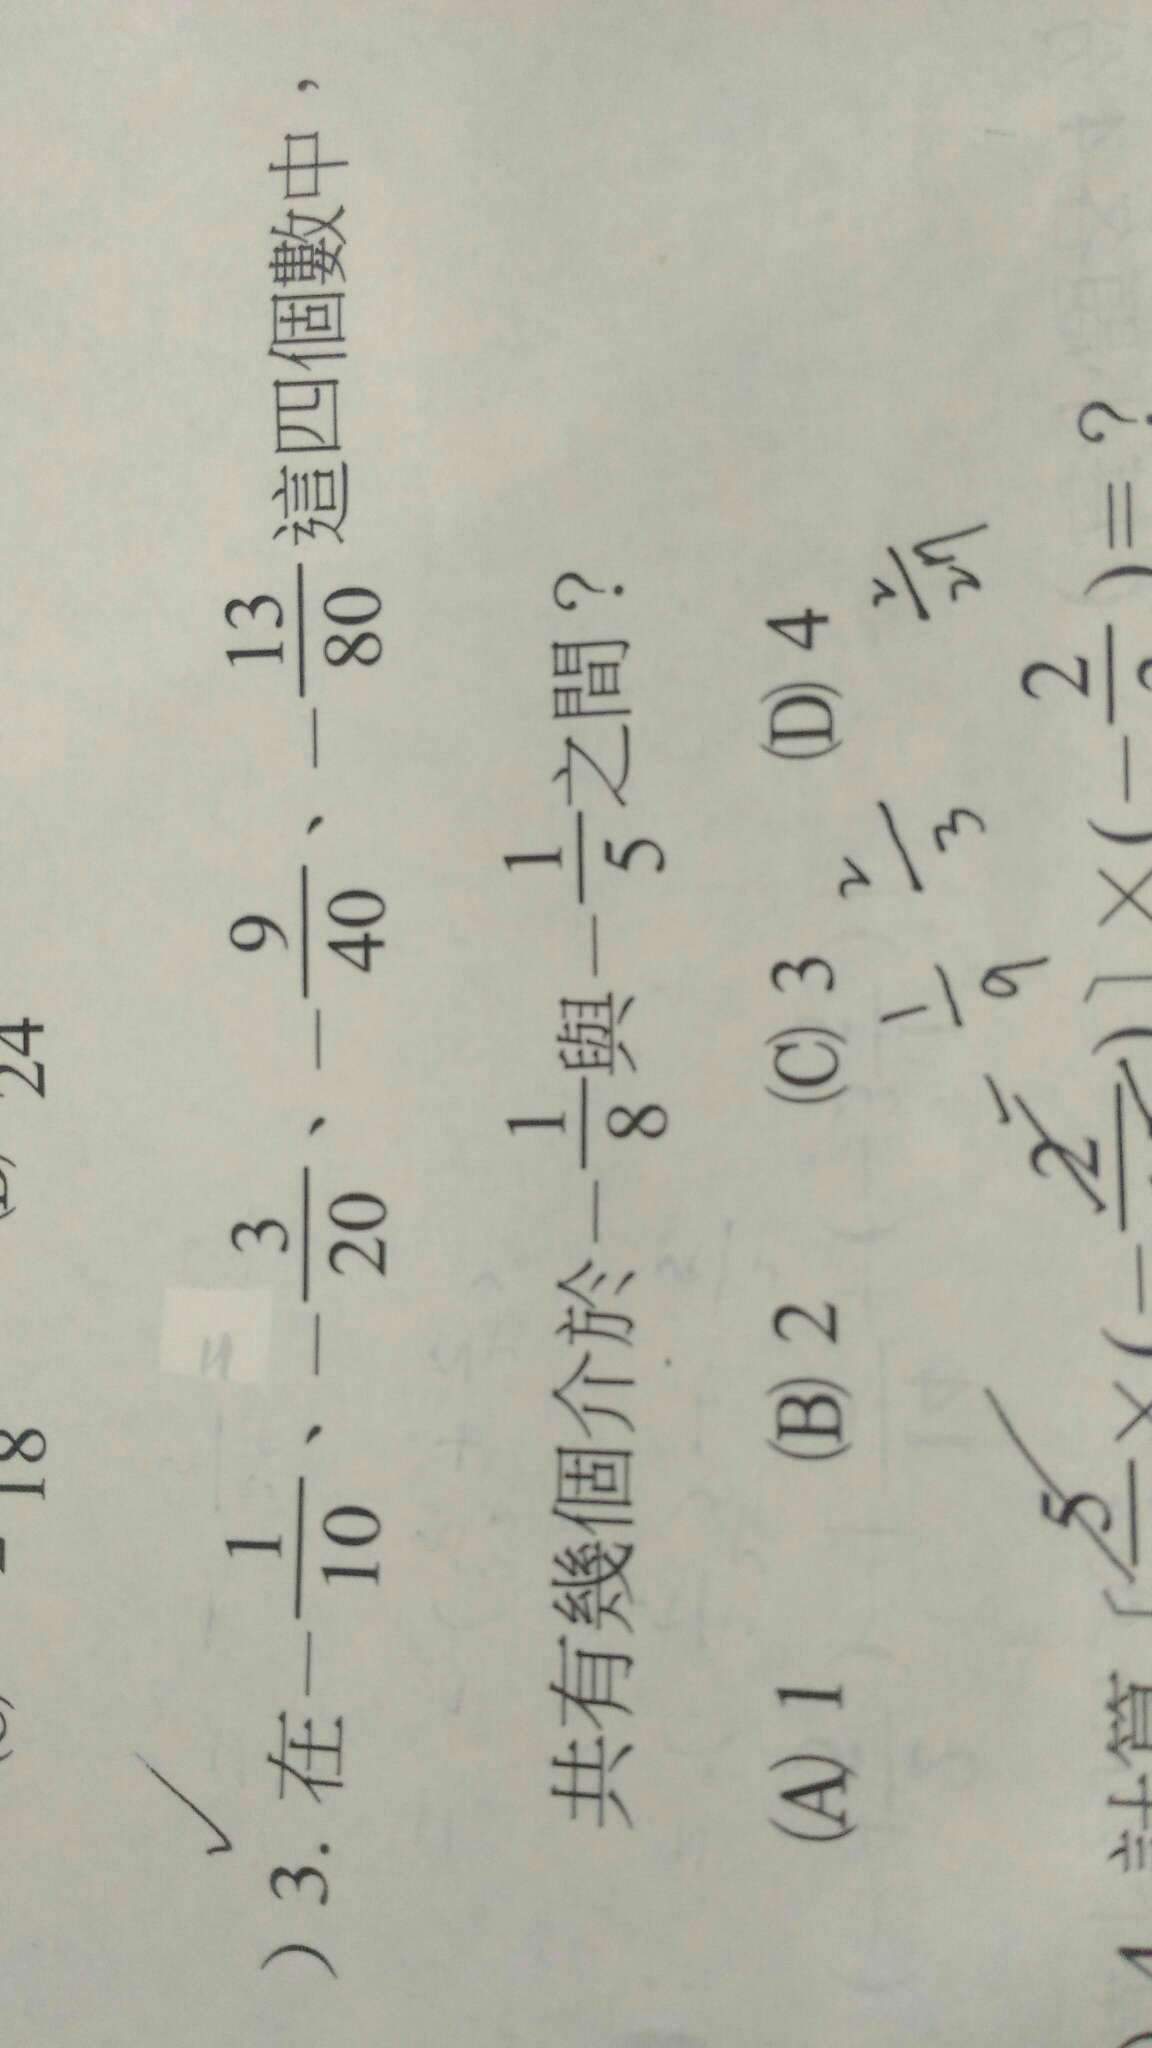 18
24
) 3. 在 -1/10、-3/20、-9/40、-13/80 這四個數中，
共有幾個介於 -1/8 與 -1/5 之間？
(A) 1 (B) 2 (C) 3 (D) 4
1/9 2/3
5 × (- 2 )] × (- 2 ) = ?